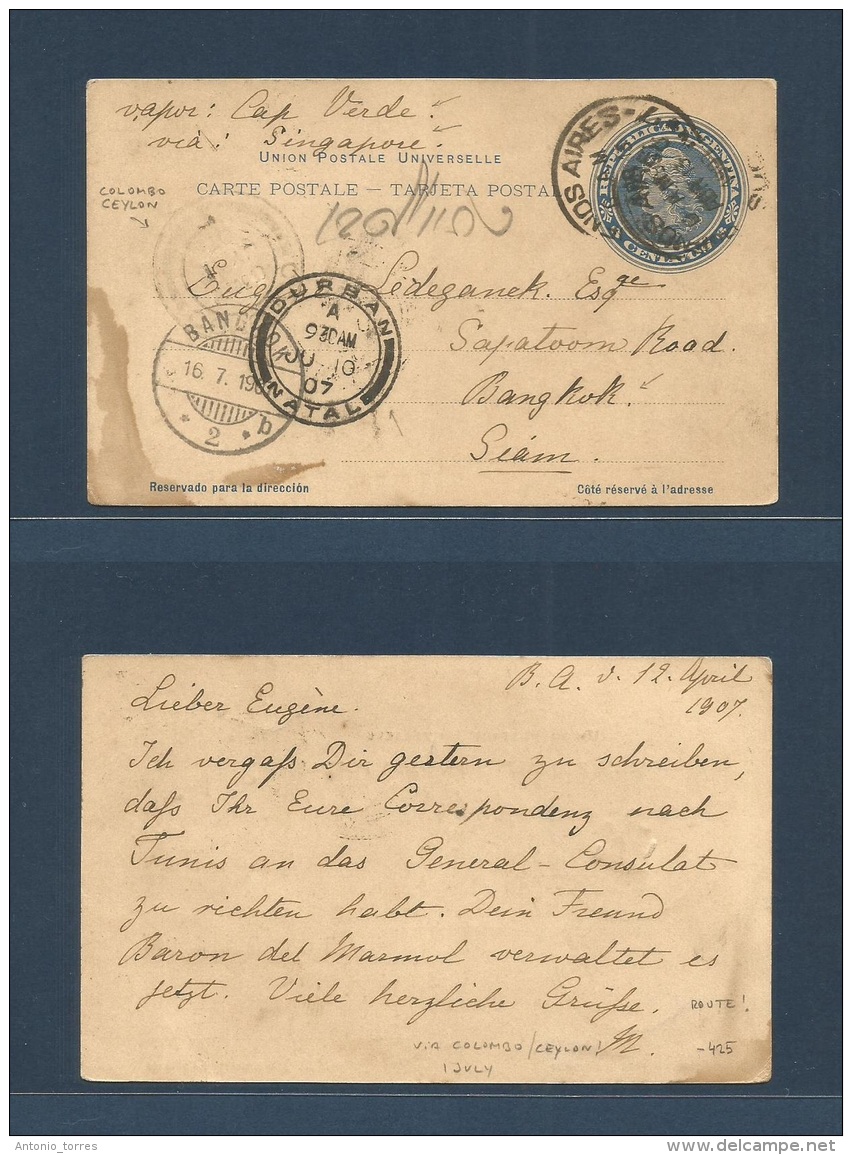 vapor: Cap Verde.
via: Singapore.
UNION POSTALE UNIVERSELLE
CARTE POSTALE — TARJETA POSTAL
COLOMBO
CEYLON
REPUBLICA ARGENTINA
CENTAVOS
BUENOS AIRES
Ledeganck. Esqre
Sapatoom Road.
Bangkok.
Siam.
DURBAN
A
930AM
JU 10
07
NATAL
BANGKOK
16. 7. 190
* 2 * b
Reservado para la dirección
Côté réservé à l'adresse
B. A. d. 12. April
1907.
Lieber Eugène.
Ich vergaß Dir gestern zu schreiben,
daß Ihr Eure Correspondenz nach
Tunis an das General-Consulat
zu richten habt. Dein Freund
Baron del Marmol verwaltet es
jetzt. Viele herzliche Grüße.
M.
ROUTE!
VIA COLOMBO/CEYLON!
1 JULY
-425
Antonio_torres
www.delcampe.net